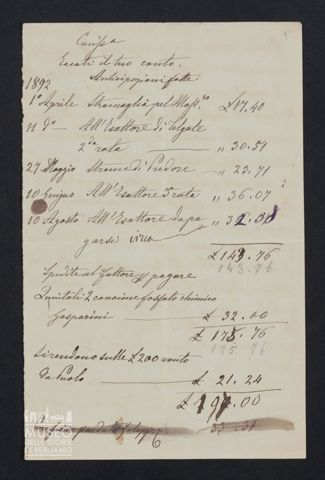 Eccoti il tuo conto.
Anticipazioni fatte
1892
1° Aprile Stramaglia pel £17.40
11 d° — All'Esattore di Telgate
2da rata — „ 30.51
27 Maggio Strame di Predore — „ 23.71
10 Giugno All'Esattore 3 rata „ 36.07
10 Agosto All'Esattore da pa
garsi circa
£ 143.76
143.76
Spedite al fattore pagare
Quintali 2 concime fosfato chimico
Gasparini £ 32.00
£ 175.76
175 76
si rendono sulle £ 200
da Paolo — £ 21.24
£ 197.00
MUSEO
DELLE STORIE
DI BERGAMO